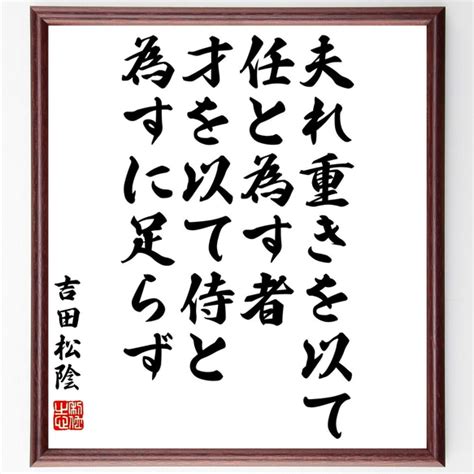 夫れ重きを以て
任と為す者
才を以て侍と
為すに足らず
吉田松陰